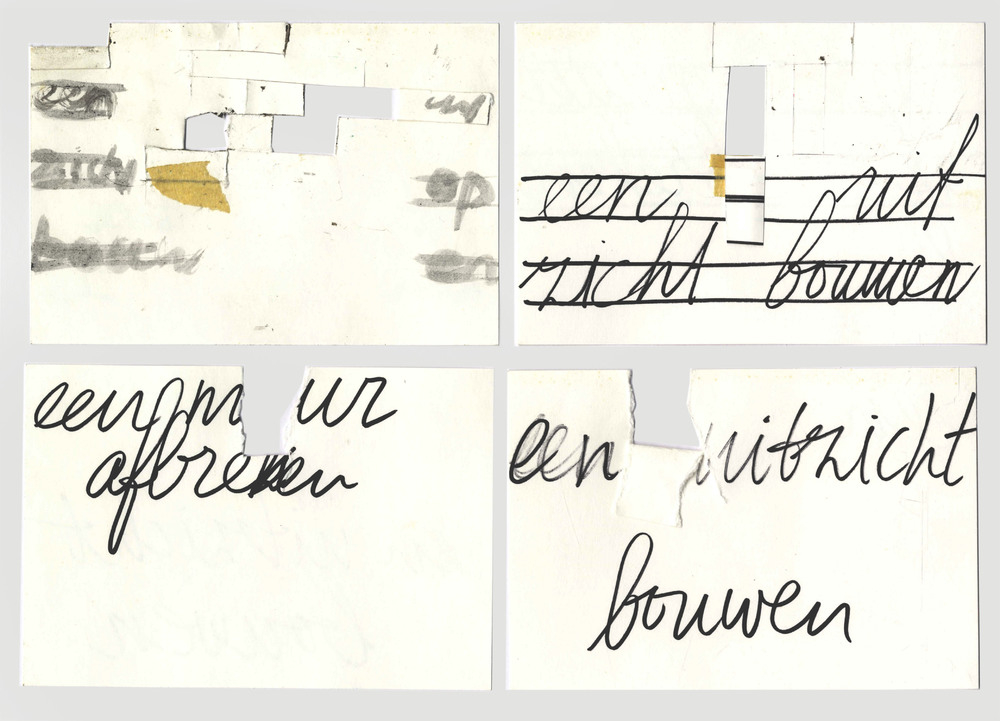 een uit
zicht op
bouw en
een uit
zicht bouwen
een muur
afbreken
een uitzicht
bouwen